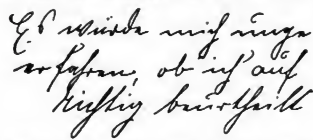 Es würde mich unge
erfahren, ob ich auf
richtig beurtheilt